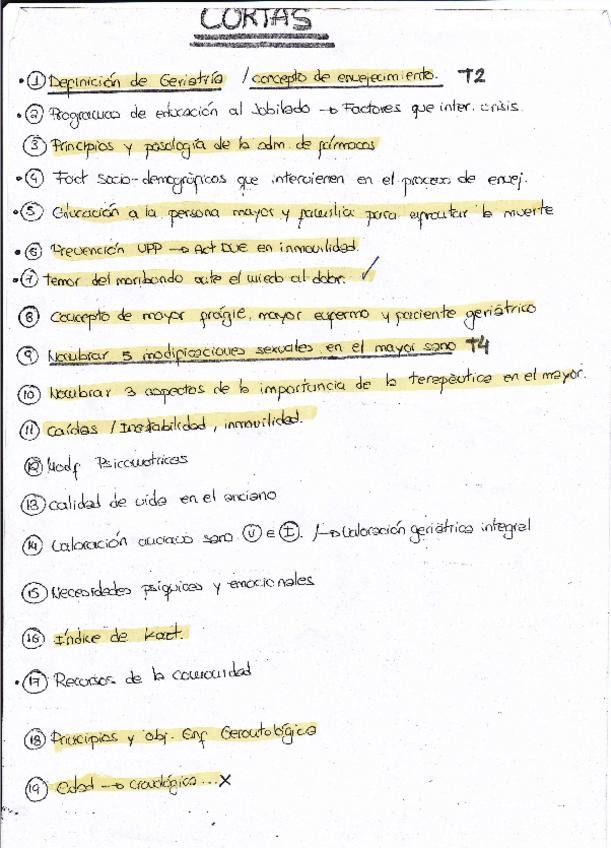 CORTAS
• ① Definición de Geriatría / concepto de envejecimiento. T2
• ② Programas de educación al Jubilado → Factores que inter. crisis.
③ Principios y posología de la adm. de fármacos
• ④ Fact socio-demográficos que intervienen en el proceso de envej.
• ⑤ Educación a la persona mayor y familia para afrontar la muerte
• ⑥ Prevención UPP → Act DUE en inmovilidad.
• ⑦ Temor del moribundo ante el miedo al dolor. ✓
⑧ Concepto de mayor frágil, mayor enfermo y paciente geriátrico
⑨ Nombrar 5 modificaciones sexuales en el mayor sano T4
⑩ Nombrar 3 aspectos de la importancia de la terapéutica en el mayor.
⑪ Caídas / Inestabilidad, inmovilidad.
⑫ Modf Psicomotrices
⑬ Calidad de vida en el anciano
⑭ Valoración anciano sano Ⓥ e Ⓘ. /→ Valoración geriátrica integral
⑮ Necesidades psíquicas y emocionales
⑯ Índice de Kast.
• ⑰ Recursos de la comunidad
⑱ Principios y obj. Enf Gerontológica
⑲ Edad → cronológica ... X